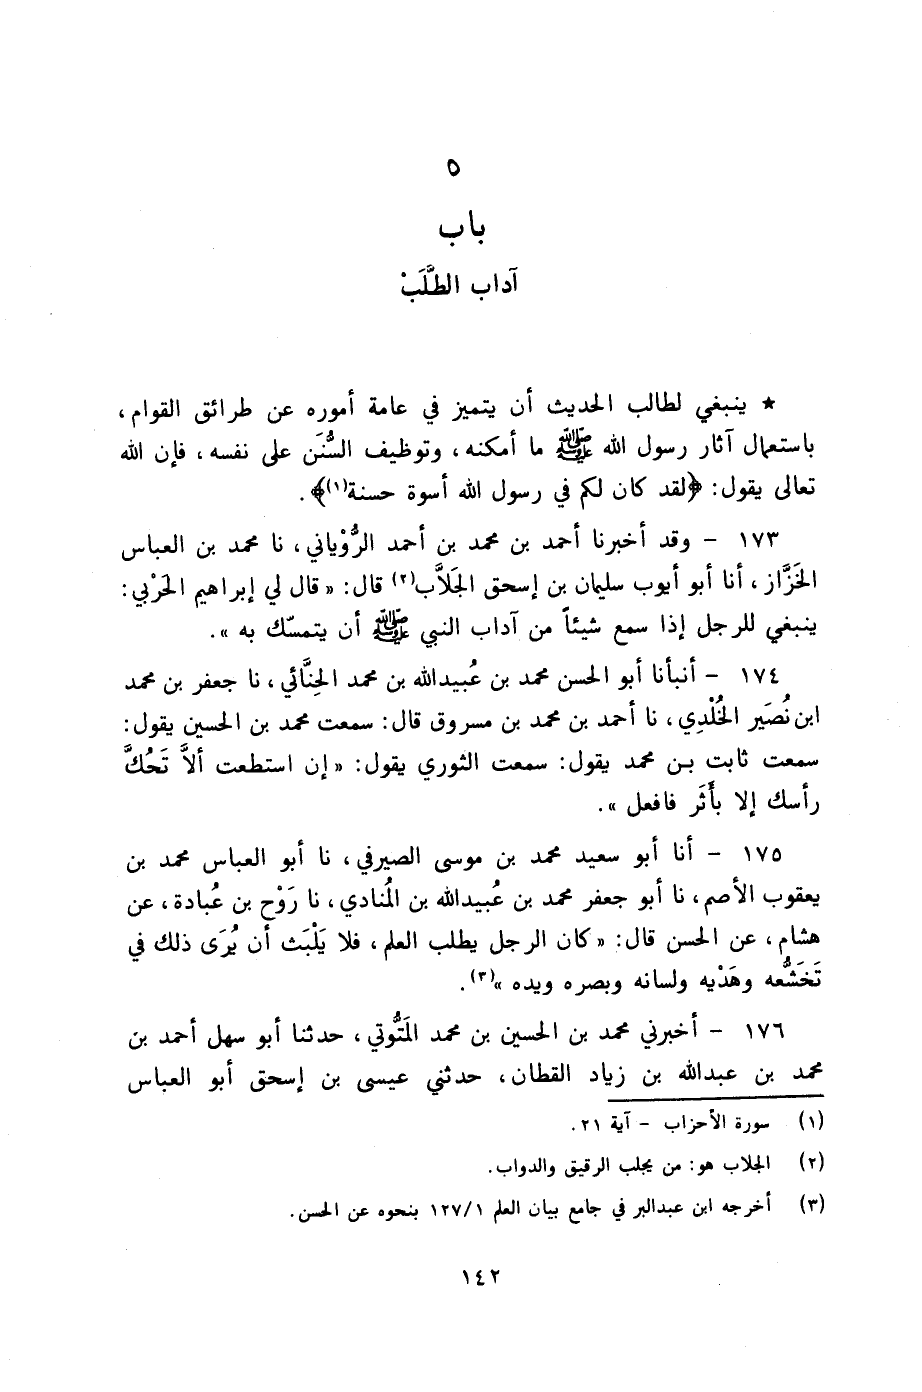 ٥
باب
آداب الطَّلَبْ
★ ينبغي لطالب الحديث أن يتميز في عامة أموره عن طرائق القوام ،
باستعمال آثار رسول الله ﷺ ما أمكنه ، وتوظيف السُّنَن على نفسه ، فإن الله
تعالى يقول : ﴿لقد كان لكم في رسول الله أسوة حسنة(١)﴾ .
١٧٣ - وقد أخبرنا أحمد بن محمد بن أحمد الرُّوْياني ، نا محمد بن العباس
الخَزَّاز ، أنا أبو أيوب سليمان بن إسحق الجَلاَّب(٢) قال : « قال لي إبراهيم الحَرْبي :
ينبغي للرجل إذا سمع شيئاً من آداب النبي ﷺ أن يتمسّك به » .
١٧٤ - أنبأنا أبو الحسن محمد بن عُبيدالله بن محمد الحِنَّائي ، نا جعفر بن محمد
ابن نُصَير الخُلْدِي ، نا أحمد بن محمد بن مسروق قال : سمعت محمد بن الحسين يقول :
سمعت ثابت بن محمد يقول : سمعت الثوري يقول : « إن استطعت ألاَّ تَحُكَّ
رأسك إلا بأَثَر فافعل » .
١٧٥ - أنا أبو سعيد محمد بن موسى الصيرفي ، نا أبو العباس محمد بن
يعقوب الأصم ، نا أبو جعفر محمد بن عُبيدالله بن المُنادي ، نا رَوْح بن عُبادة ، عن
هشام ، عن الحسن قال : « كان الرجل يطلب العلم ، فلا يَلْبَث أن يُرَى ذلك في
تَخَشُّعه وهَدْيه ولسانه وبصره ويده »(٣) .
١٧٦ - أخبرني محمد بن الحسين بن محمد المَتُّوثي ، حدثنا أبو سهل أحمد بن
محمد بن عبدالله بن زياد القطان ، حدثني عيسى بن إسحق أبو العباس
(١) سورة الأحزاب - آية ٢١ .
(٢) الجلاب هو : من يجلب الرقيق والدواب .
(٣) أخرجه ابن عبدالبر في جامع بيان العلم ١٢٧/١ بنحوه عن الحسن .
١٤٢